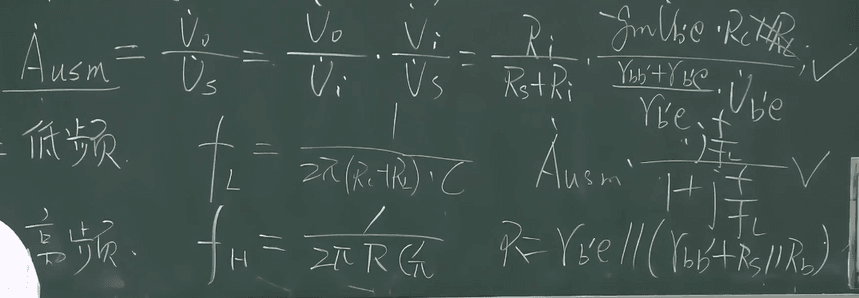 Ȧusm = U̇o/U̇s = U̇o/U̇i · U̇i/U̇s = Ri/(Rs+Ri) · (gmU̇b'e · Rc//RL)/((rbb'+rb'e)/rb'e · U̇b'e) ✓
低频. fL = 1/(2π(Rc+RL)·C) Ȧusm · (j f/fL)/(1+j f/fL) ✓
高频. fH = 1/(2πRC'π) R = rb'e//(rbb'+Rs//Rb)